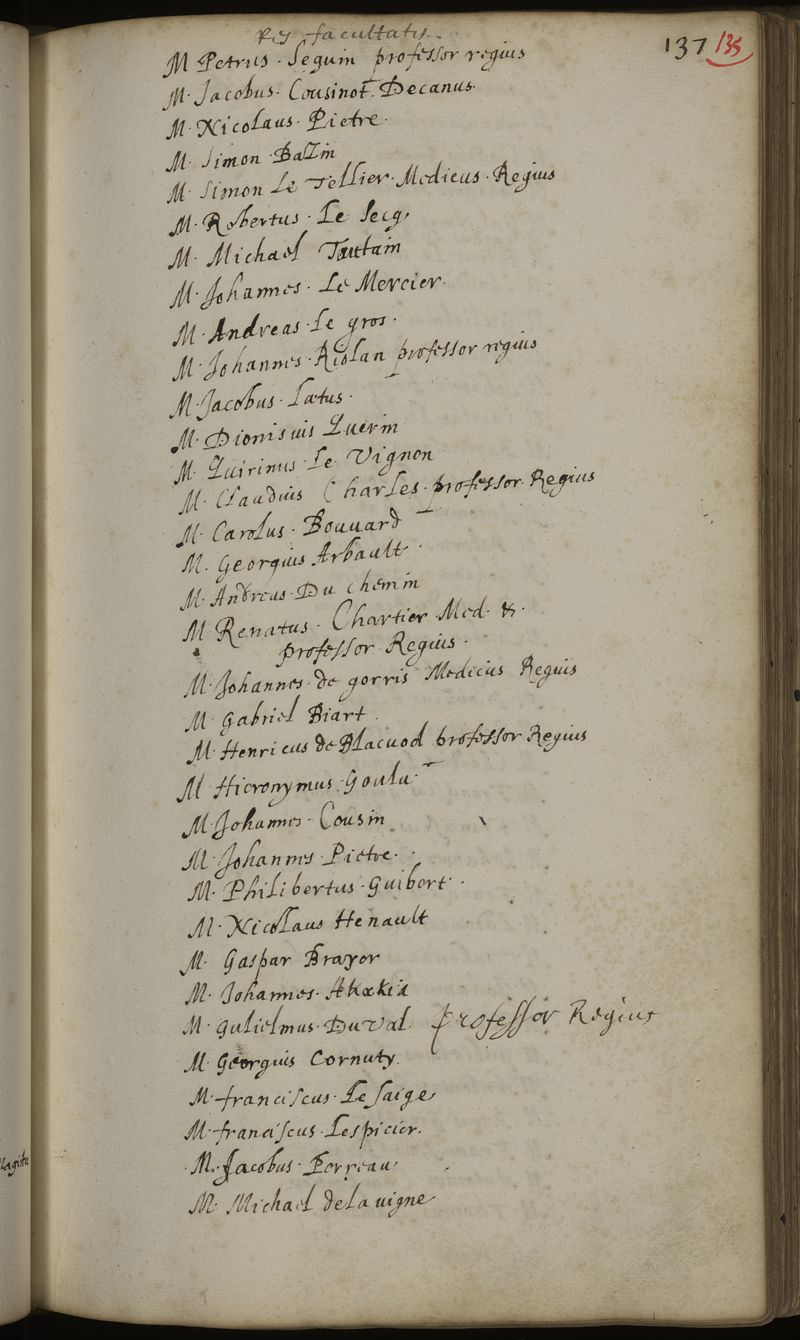 137 135
facultatis
M Petrus · Seguin professor regius
M · Jacobus · Cousinot · Decanus
M · Nicolaus · Pietre ·
M · Simon · Bazin
M · Simon Le Tellier · Medicus · Regius
M · Robertus · Le Secq
M · Michael Toutain
M · Johannes · Le Mercier ·
M · Andreas · Le gros ·
M · Johannes · Riolan professor regius
M · Jacobus · Lætus ·
M · Dionisius Guerin
M · Quirinus · Le Vignon
M · Claudius Charles · professor · Regius
M · Carolus · Bouuard
M · Georgius Arbault ·
M · Andreas · Du chemin
M Renatus · Chartier · Med · & ·
professor Regius ·
M · Johannes · de gorris Medicus Regius
M Gabriel Biart ·
M · Henricus de Blacuod professor Regius
M Hieronymus · Goulu ·
M · Johannes · Cousin
M · Johannes · Pietre ·
M · Philibertus · Guibert ·
M · Nicolaus Henault
M · Gaspar Brayer
M · Johannes · Akakia
M · Gulielmus · Du Val professor Regius
M Georgius Cornuty ·
M · franciscus · Le Saige
M · franciscus · Lespicier ·
M · Jacobus · Perreau
M · Michael de la uigne